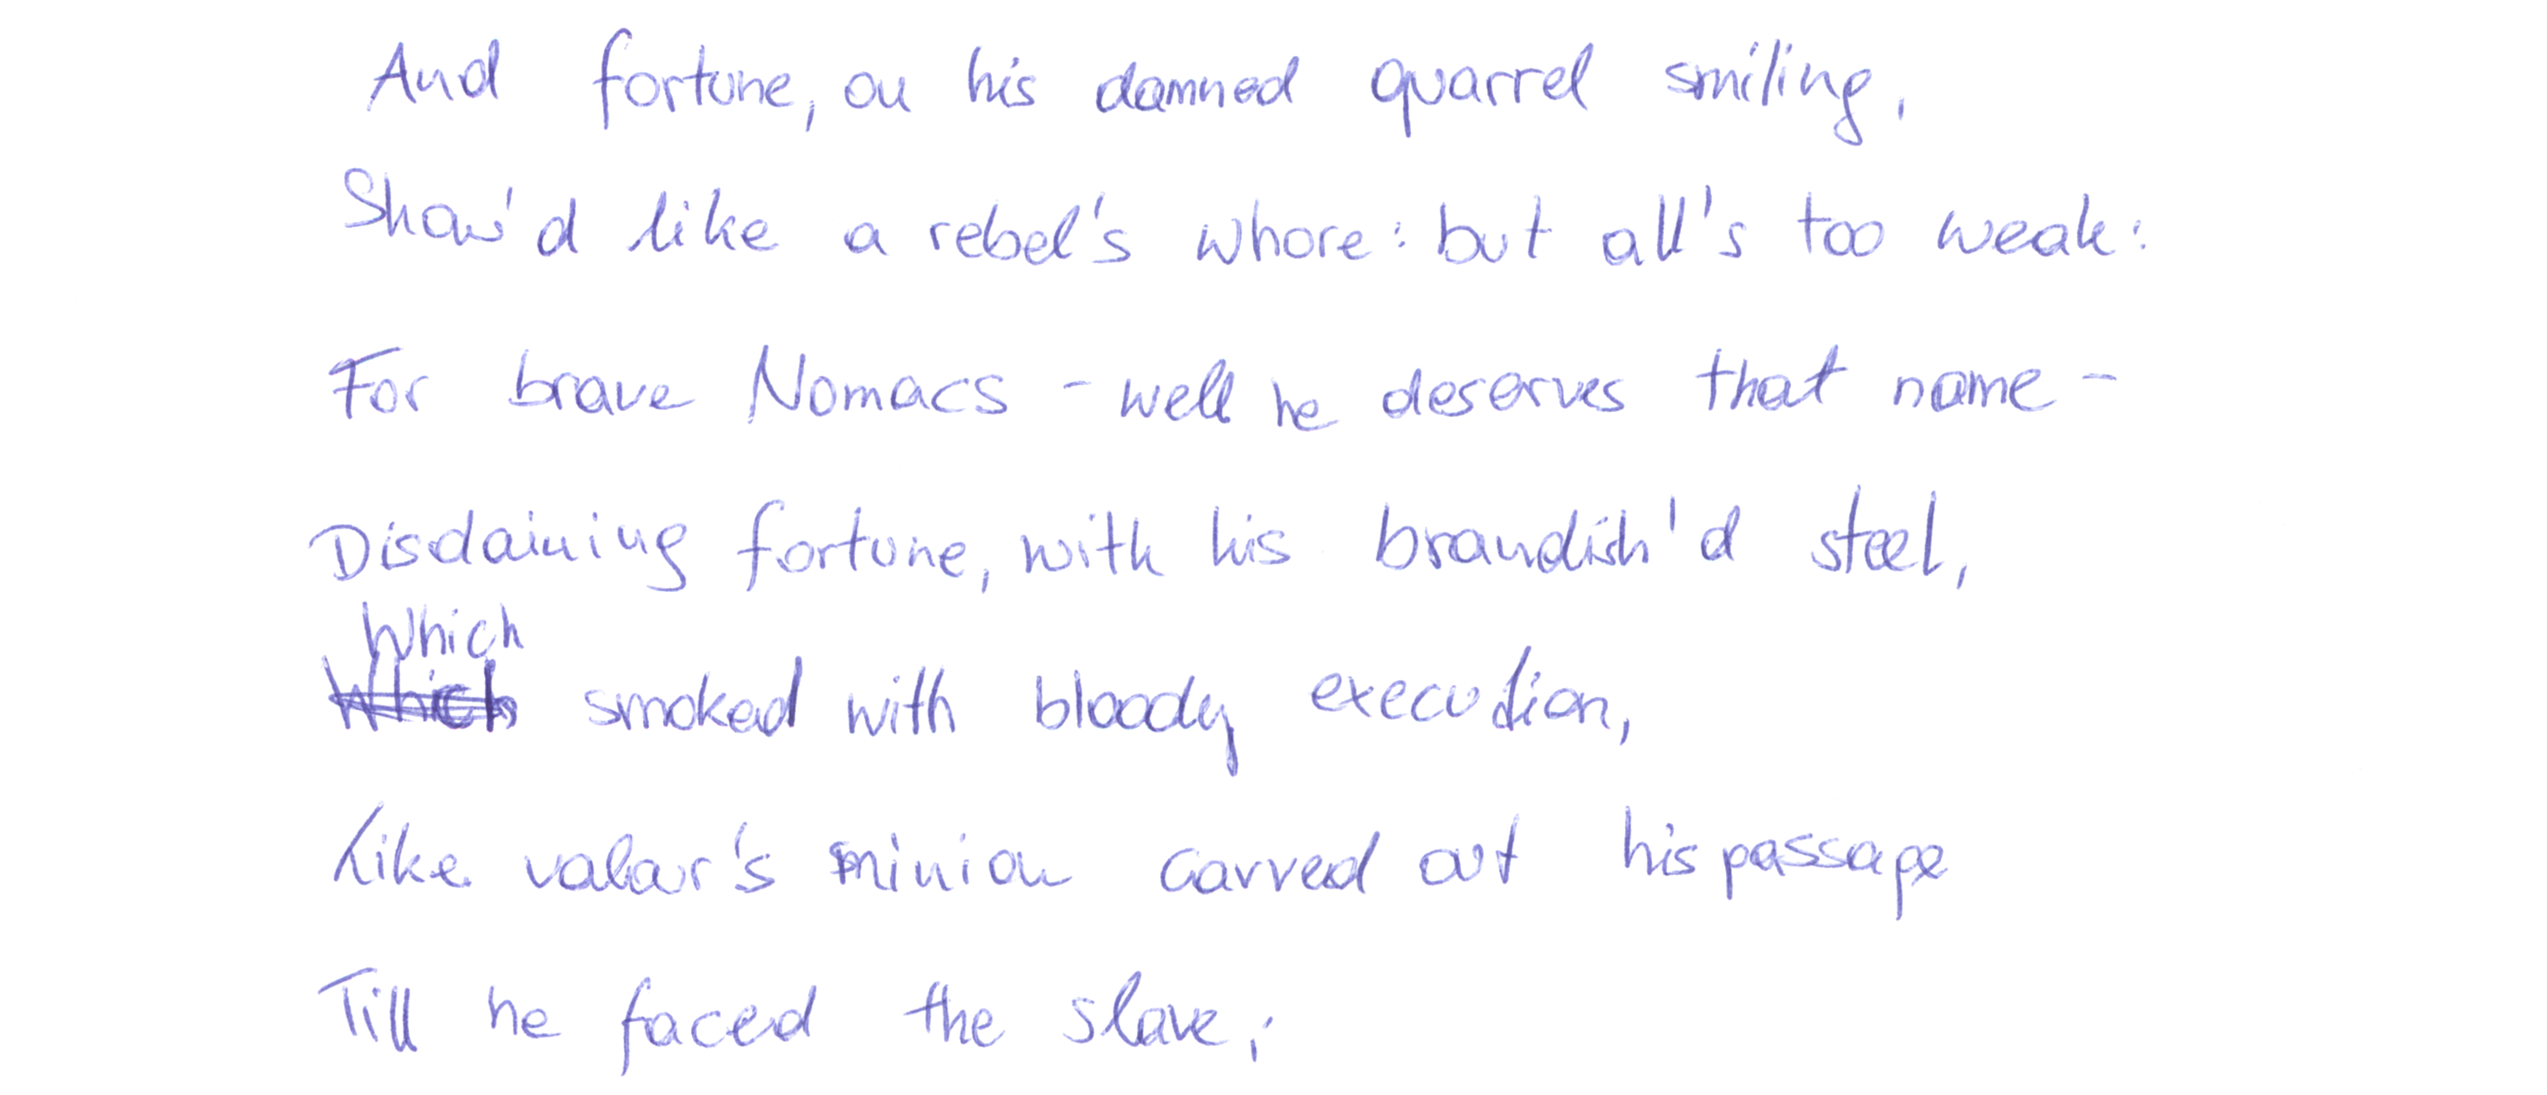 And fortune, on his damned quarrel smiling,
Show'd like a rebel's whore: but all's too weak:
For brave Nomacs - well he deserves that name -
Disdaining fortune, with his brandish'd steel,
Which
Which smoked with bloody execution,
Like valour's minion carved out his passage
Till he faced the slave;